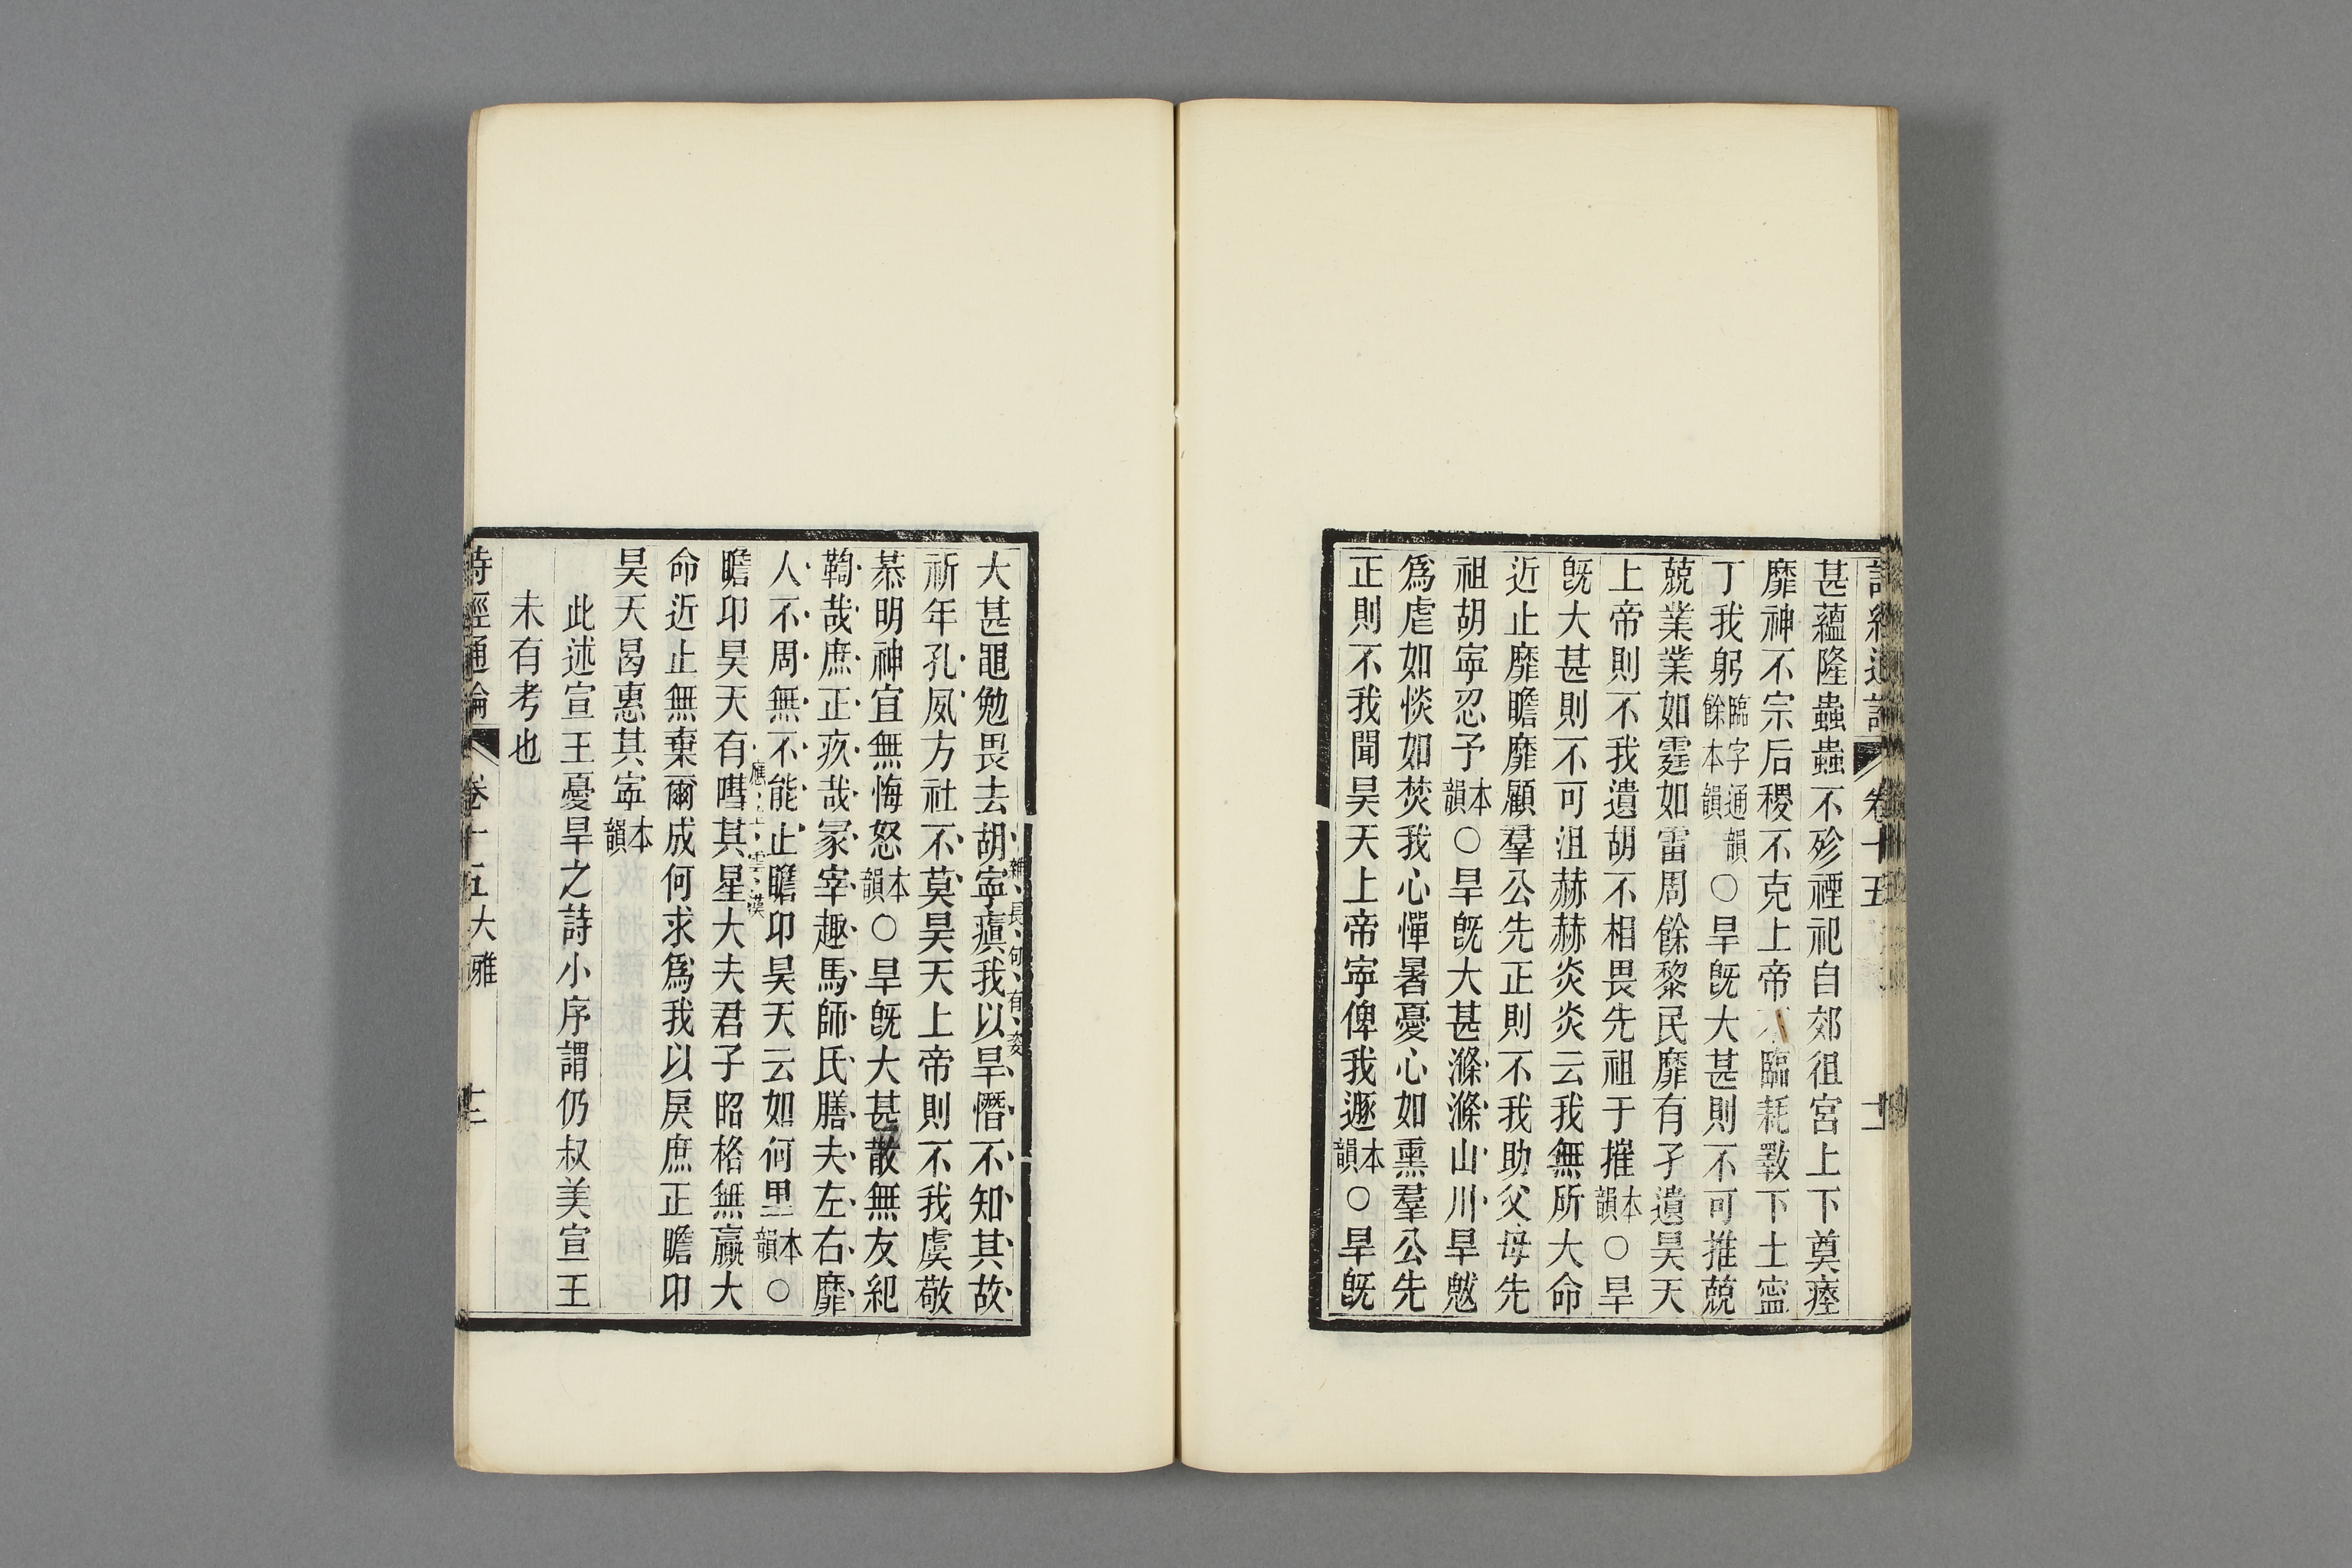 詩經通論 卷十五 十一
甚蘊隆蟲蟲不殄禋祀自郊徂宮上下奠瘞
靡神不宗后稷不克上帝不臨耗斁下土寧
丁我躬臨字通韻餘本韻○旱旣大甚則不可推兢
兢業業如霆如雷周餘黎民靡有孑遺昊天
上帝則不我遺胡不相畏先祖于摧本韻○旱
旣大甚則不可沮赫赫炎炎云我無所大命
近止靡瞻靡顧羣公先正則不我助父母先
祖胡寧忍予本韻○旱旣大甚滌滌山川旱魃
爲虐如惔如焚我心憚暑憂心如熏羣公先
正則不我聞昊天上帝寧俾我遯本韻○旱旣
大甚黽勉畏去胡寧瘨我以旱憯不知其故
雜長句有姿
祈年孔夙方社不莫昊天上帝則不我虞敬
恭明神宜無悔怒本韻○旱旣大甚散無友紀
鞫哉庶正疚哉冢宰趣馬師氏膳夫左右靡
人不周無不能止瞻卬昊天云如何里本韻○
應上雲漢
瞻卬昊天有嘒其星大夫君子昭格無贏大
命近止無棄爾成何求爲我以戾庶正瞻卬
昊天曷惠其寧本韻
此述宣王憂旱之詩小序謂仍叔美宣王
未有考也
詩經通論 卷十五 大雅 十二